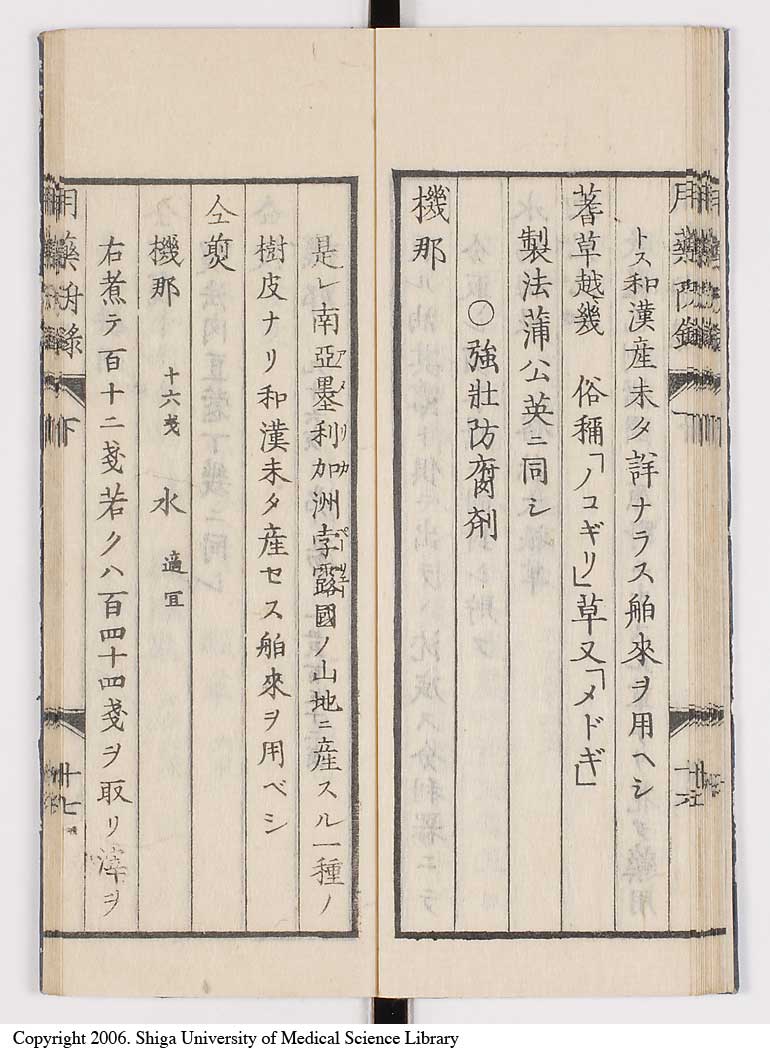 トス和漢産未タ詳ナラス舶來ヲ用ヘシ
蓍草越幾 俗稱「ノコギリ」草又「メドギ」
製法蒲公英ニ同シ
○強壯防腐剤
機那
是レ南亞墨利加洲孛露國ノ山地ニ産スル一種ノ
樹皮ナリ和漢未タ産セス舶來ヲ用ベシ
仝煎
機那 十六戔 水 適宜
右煮テ百十二戔若クハ百四十四戔ヲ取リ滓ヲ
下
十七
Copyright 2006. Shiga University of Medical Science Library